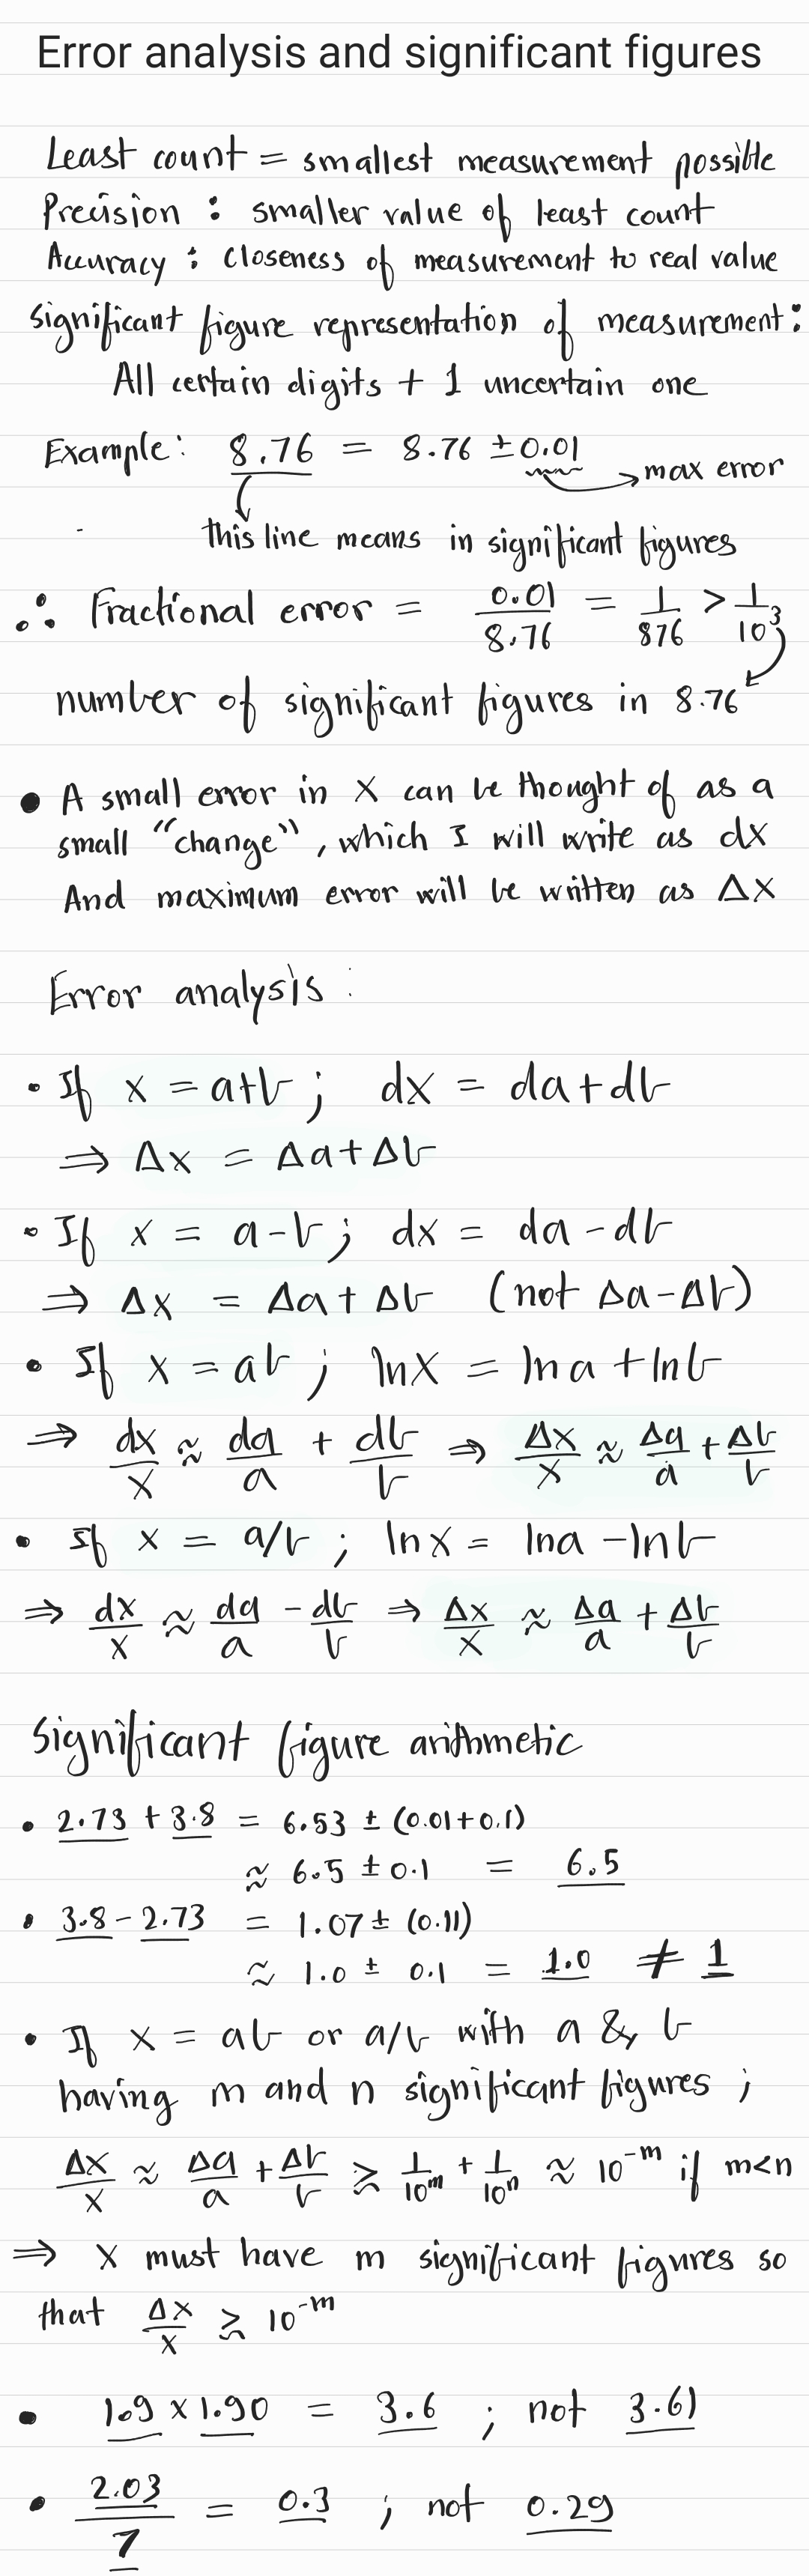 Error analysis and significant figures
Least count = smallest measurement possible
Precision : smaller value of least count
Accuracy : closeness of measurement to real value
significant figure representation of measurement :
All certain digits + 1 uncertain one
Example: 8.76 = 8.76 ± 0.01
→ max error
this line means in significant figures
∴ Fractional error = 0.01/8.76 = 1/876 > 1/10³
number of significant figures in 8.76
• A small error in x can be thought of as a
small "change", which I will write as dx
And maximum error will be written as Δx
Error analysis :
• If x = a+b ; dx = da+db
⇒ Δx = Δa+Δb
• If x = a-b ; dx = da-db
⇒ Δx = Δa+Δb (not Δa-Δb)
• If x = ab ; lnx = lna + lnb
⇒ dx/x ≈ da/a + db/b ⇒ Δx/x ≈ Δa/a + Δb/b
• If x = a/b ; lnx = lna - lnb
⇒ dx/x ≈ da/a - db/b ⇒ Δx/x ≈ Δa/a + Δb/b
Significant figure arithmetic
• 2.73 + 3.8 = 6.53 ± (0.01+0.1)
≈ 6.5 ± 0.1 = 6.5
• 3.8 - 2.73 = 1.07 ± (0.11)
≈ 1.0 ± 0.1 = 1.0 ≠ 1
• If x = ab or a/b with a & b
having m and n significant figures ;
Δx/x ≈ Δa/a + Δb/b ≳ 1/10ᵐ + 1/10ⁿ ≈ 10⁻ᵐ if m<n
⇒ x must have m significant figures so
that Δx/x ≳ 10⁻ᵐ
• 1.9 × 1.90 = 3.6 ; not 3.61
• 2.03/7 = 0.3 ; not 0.29